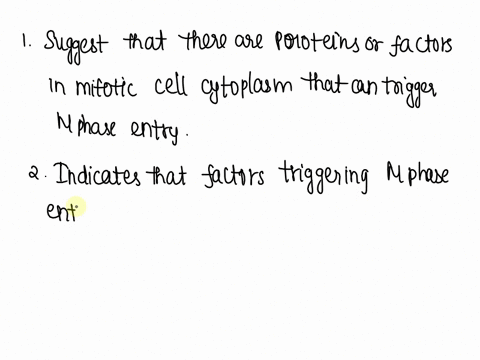 1. Suggest that there are poroteins or factors
in mitotic cell cytoplasm that can trigger
M phase entry.
2. Indicates that factors triggering M phase
ent